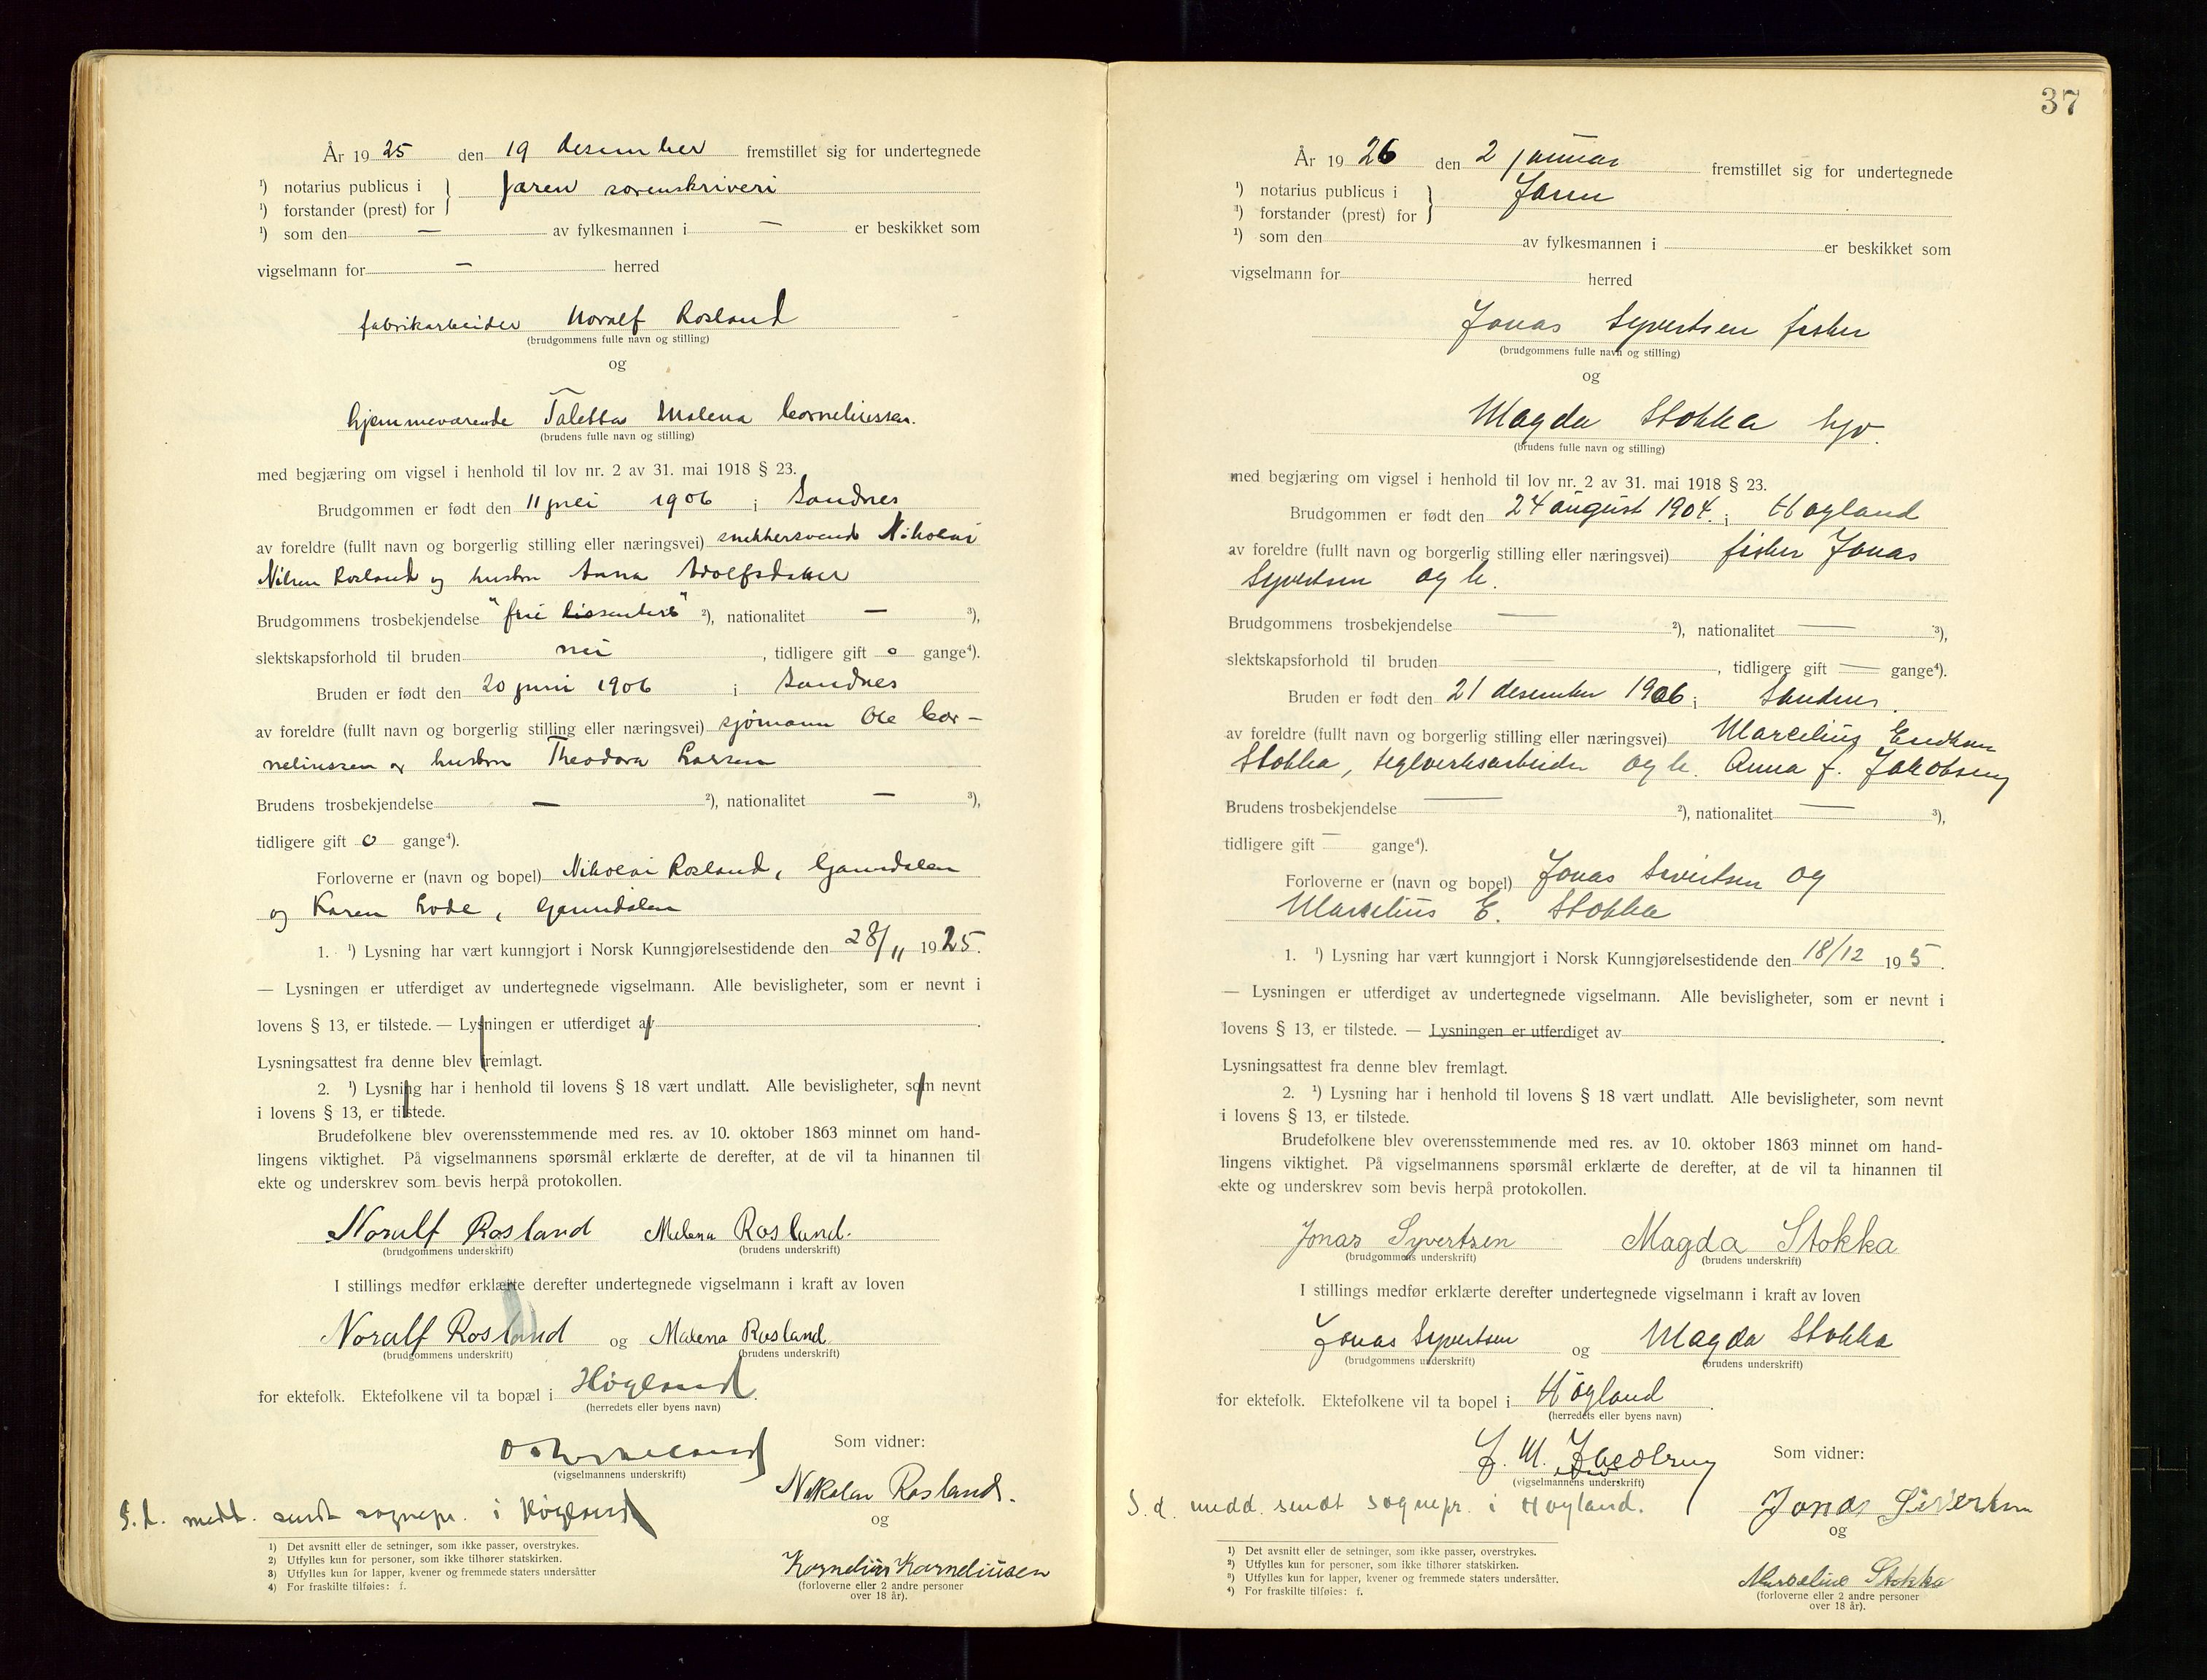 År 1925 den 19 desember fremstillet sig for undertegnede
¹) notarius publicus i } Jæren sorenskriveri
¹) forstander (prest) for
¹) som den — av fylkesmannen i — er beskikket som
vigselmann for — herred
fabrikarbeider Noralf Rosland
(brudgommens fulle navn og stilling)
og
hjemmeværende Taletta Malena Corneliussen.
(brudens fulle navn og stilling)
med begjæring om vigsel i henhold til lov nr. 2 av 31. mai 1918 § 23.
Brudgommen er født den 11 juli 1906 i Sandnes
av foreldre (fullt navn og borgerlig stilling eller næringsvei) snekkersvend Nikolai
Nilsen Rosland og hustru Anna Adolfsdatter
Brudgommens trosbekjendelse "frie dissentere" ²), nationalitet — ³),
slektskapsforhold til bruden nei , tidligere gift 0 gange⁴).
Bruden er født den 20 juni 1906 i Sandnes
av foreldre (fullt navn og borgerlig stilling eller næringsvei) sjömann Ole Cor-
neliussen og hustru Theodora Larsen
Brudens trosbekjendelse — ²), nationalitet — ³),
tidligere gift 0 gange⁴).
Forloverne er (navn og bopel) Nikolai Rosland, Ganddalen
og Karen Lode, Ganddalen
1. ¹) Lysning har vært kunngjort i Norsk Kunngjørelsestidende den 28/11 1925.
— Lysningen er utferdiget av undertegnede vigselmann. Alle bevisligheter, som er nevnt i
lovens § 13, er tilstede. — Lysningen er utferdiget av .
Lysningsattest fra denne blev fremlagt.
2. ¹) Lysning har i henhold til lovens § 18 vært undlatt. Alle bevisligheter, som nevnt
i lovens § 13, er tilstede.
Brudefolkene blev overensstemmende med res. av 10. oktober 1863 minnet om hand-
lingens viktighet. På vigselmannens spørsmål erklærte de derefter, at de vil ta hinannen til
ekte og underskrev som bevis herpå protokollen.
Noralf Rosland Malena Rosland.
(brudgommens underskrift) (brudens underskrift)
I stillings medfør erklærte derefter undertegnede vigselmann i kraft av loven
Noralf Rosland og Malena Rosland
(brudgommens underskrift) (brudens underskrift)
for ektefolk. Ektefolkene vil ta bopæl i Høyland.
(herredets eller byens navn)
Som vidner:
(vigselmannens underskrift)
Nikolai Rosland.
S. d. medd. sendt sognepr. i Høyland
og
Kornelius Korneliusen
(forloverne eller 2 andre personer
over 18 år).
1) Det avsnitt eller de setninger, som ikke passer, overstrykes.
2) Utfylles kun for personer, som ikke tilhører statskirken.
3) Utfylles kun for lapper, kvener og fremmede staters undersåtter
4) For fraskilte tilføies: f.
37
År 1926 den 2 januar fremstillet sig for undertegnede
¹) notarius publicus i } Jæren
¹) forstander (prest) for
¹) som den av fylkesmannen i er beskikket som
vigselmann for herred
Jonas Syvertsen fisker
(brudgommens fulle navn og stilling)
og
Magda Stokka hjv.
(brudens fulle navn og stilling)
med begjæring om vigsel i henhold til lov nr. 2 av 31. mai 1918 § 23.
Brudgommen er født den 24 august 1904. i Høyland
av foreldre (fullt navn og borgerlig stilling eller næringsvei) fisker Jonas
Syvertsen og h.
Brudgommens trosbekjendelse — ²), nationalitet — ³),
slektskapsforhold til bruden — , tidligere gift — gange⁴).
Bruden er født den 21 desember 1906 i Sandnes.
av foreldre (fullt navn og borgerlig stilling eller næringsvei) Marselius Endresen
Stokka, teglverksarbeider og h. Anna f. Jakobsen
Brudens trosbekjendelse — ²), nationalitet — ³),
tidligere gift — gange⁴).
Forloverne er (navn og bopel) Jonas Sivertsen og
Marselius E. Stokka
1. ¹) Lysning har vært kunngjort i Norsk Kunngjørelsestidende den 18/12 195.
— Lysningen er utferdiget av undertegnede vigselmann. Alle bevisligheter, som er nevnt i
lovens § 13, er tilstede. — Lysningen er utferdiget av .
Lysningsattest fra denne blev fremlagt.
2. ¹) Lysning har i henhold til lovens § 18 vært undlatt. Alle bevisligheter, som nevnt
i lovens § 13, er tilstede.
Brudefolkene blev overensstemmende med res. av 10. oktober 1863 minnet om hand-
lingens viktighet. På vigselmannens spørsmål erklærte de derefter, at de vil ta hinannen til
ekte og underskrev som bevis herpå protokollen.
Jonas Syvertsen Magda Stokka
(brudgommens underskrift) (brudens underskrift)
I stillings medfør erklærte derefter undertegnede vigselmann i kraft av loven
Jonas Syvertsen og Magda Stokka
(brudgommens underskrift) (brudens underskrift)
for ektefolk. Ektefolkene vil ta bopel i Høyland.
(herredets eller byens navn)
J. M. Som vidner:
(vigselmannens underskrift)
S. d. medd. sendt sognepr. i Høyland. Jonas Sivertsen
og
Marselius Stokka
(forloverne eller 2 andre personer
over 18 år).
¹) Det avsnitt eller de setninger, som ikke passer, overstrykes.
²) Utfylles kun for personer, som ikke tilhører statskirken.
³) Utfylles kun for lapper, kvener og fremmede staters undersåtter.
⁴) For fraskilte tilføies: f.